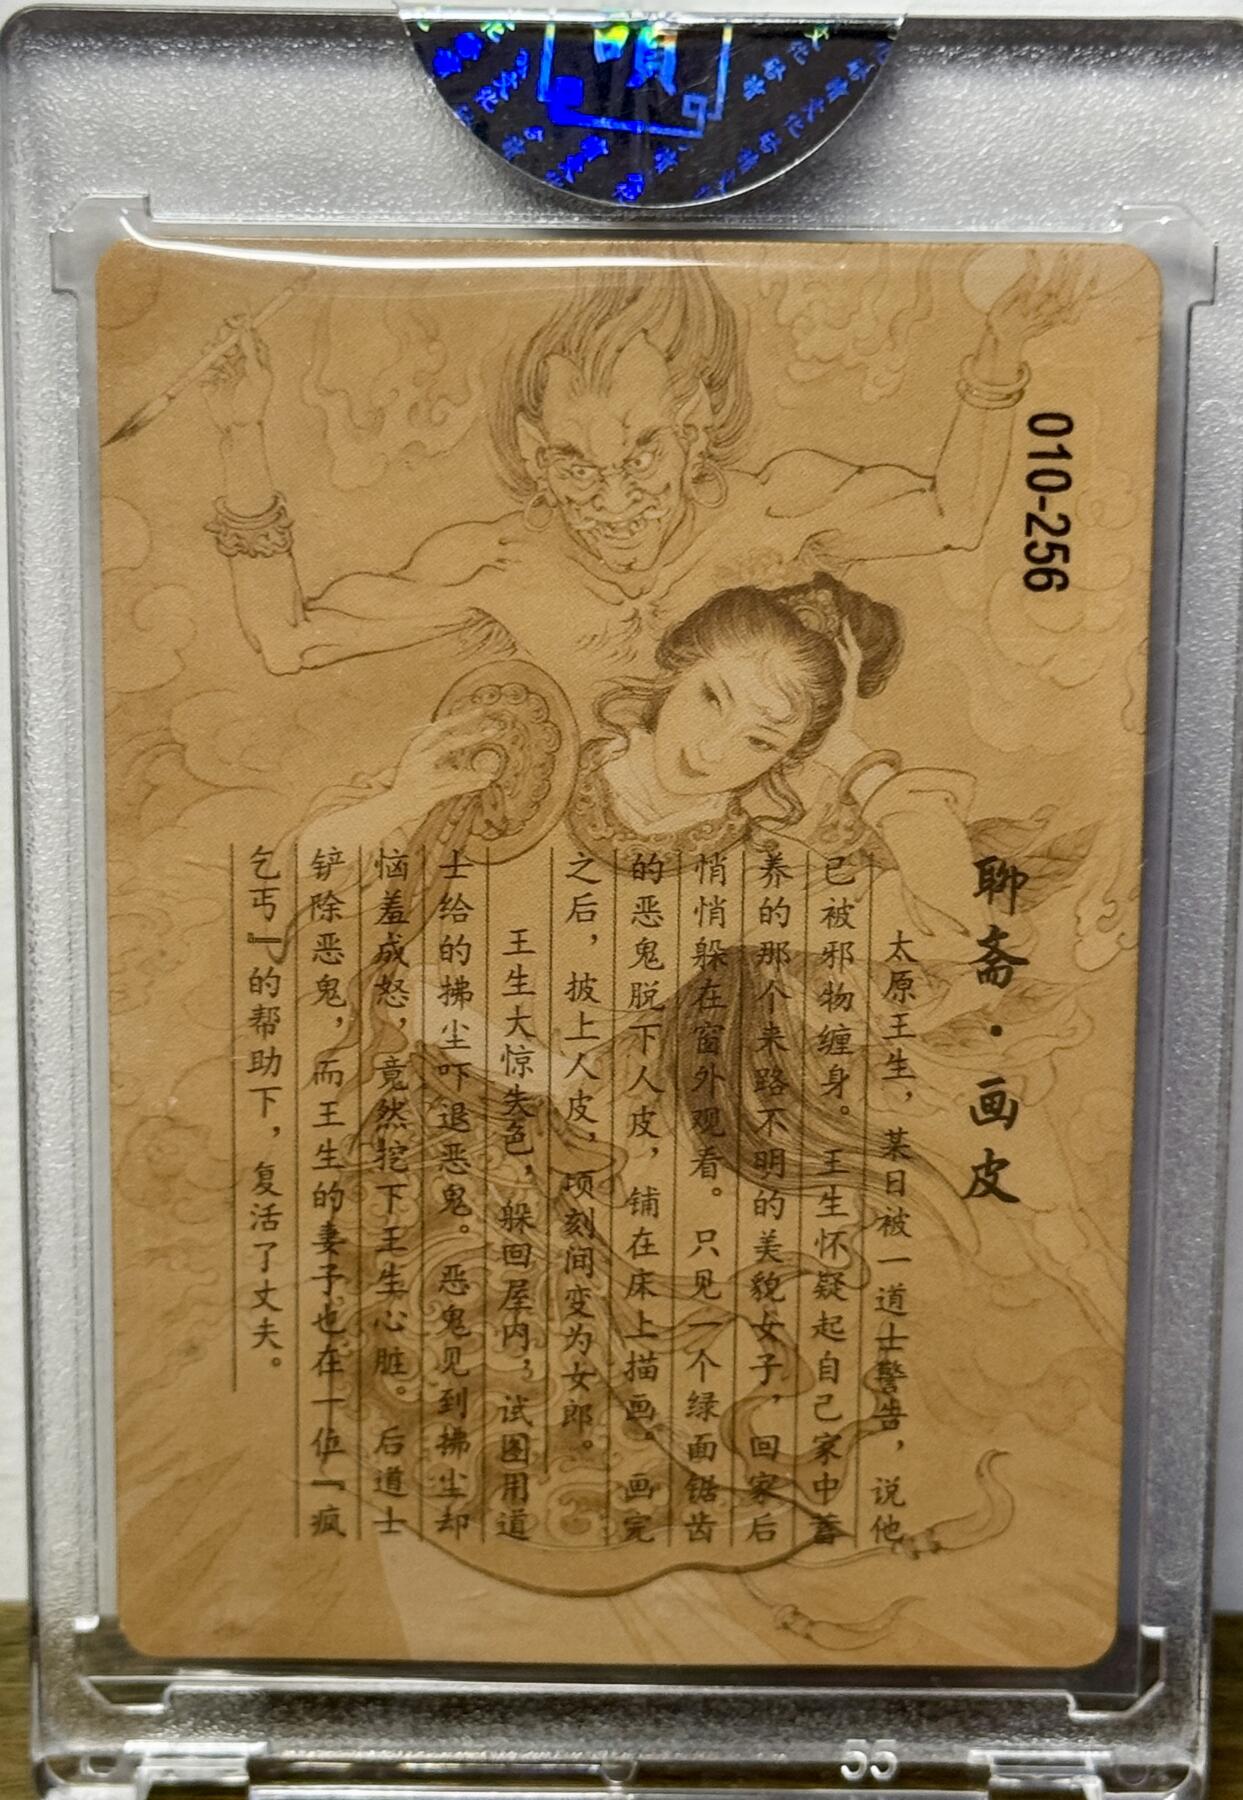 010-256
聊斋·画皮
太原王生，某日被一道士警告，说他
已被邪物缠身。王生怀疑起自己家中蓄
养的那个来路不明的美貌女子，回家后
悄悄躲在窗外观看。只见一个绿面锯齿
的恶鬼脱下人皮，铺在床上描画。画完
之后，披上人皮，顷刻间变为女郎。
王生大惊失色，躲回屋内，试图用道
士给的拂尘吓退恶鬼。恶鬼见到拂尘却
恼羞成怒，竟然挖下王生心脏。后道士
铲除恶鬼，而王生的妻子也在一位『疯
乞丐』的帮助下，复活了丈夫。
55